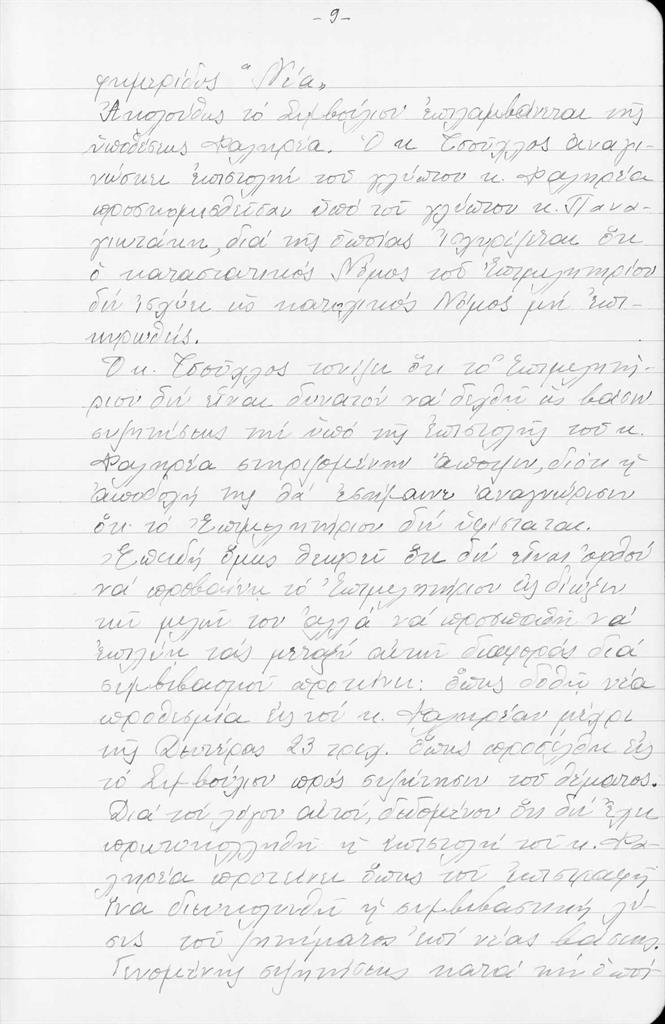 -9-
φημερίδος "Νέα"
Ἀκολούθως τό Συμβούλιον ἐπιλαμβάνεται τῆς
ὑποθέσεως Φαληρέα. Ὁ κ. Τσοῦχλος ἀναγι-
νώσκει ἐπιστολήν τοῦ γλύπτου κ. Φαληρέα
προσκομισθεῖσαν ὑπό τοῦ γλύπτου κ. Πανα-
γιωτάκη, διά τῆς ὁποίας ἰσχυρίζεται ὅτι
ὁ καταστατικός Νόμος τοῦ Ἐπιμελητηρίου
δέν ἰσχύει ὡς κατοχικός Νόμος μή ἐπι-
κυρωθείς.
Ὁ κ. Τσοῦχλος τονίζει ὅτι τό Ἐπιμελητή-
ριον δέν εἶναι δυνατόν νά δεχθῆ ὡς βάσιν
συζητήσεως τήν ὑπό τῆς ἐπιστολῆς τοῦ κ.
Φαληρέα στηριζομένην ἄποψιν, διότι ἡ
ἀποδοχή της θά ἐσήμαινε ἀναγνώρισιν
ὅτι τό Ἐπιμελητήριον δέν ὑφίσταται.
Ἐπειδή ὅμως θεωρεῖ ὅτι δέν εἶναι ὀρθόν
νά προβαίνη τό Ἐπιμελητήριον εἰς δίωξιν
τῶν μελῶν του ἀλλά νά προσπαθῆ νά
ἐπιλύη τάς μεταξύ αὐτῶν διαφοράς διά
συμβιβασμοῦ προτείνει: ὅπως δοθῆ νέα
προθεσμία εἰς τόν κ. Φαληρέαν μέχρι
τῆς Δευτέρας 23 τρεχ. ὅπως προσέλθη εἰς
τό Συμβούλιον πρός συζήτησιν τοῦ θέματος.
Διά τόν λόγον αὐτόν, δεδομένου ὅτι δέν ἔχει
πρωτοκολληθῆ ἡ ἐπιστολή τοῦ κ. Φα-
ληρέα προτείνει ὅπως τοῦ ἐπιστραφῆ
ἵνα διευκολυνθῆ ἡ συμβιβαστική λύ-
σις τοῦ ζητήματος ἐπί νέας βάσεως.
Γενομένης συζητήσεως κατά τήν ὁποί-